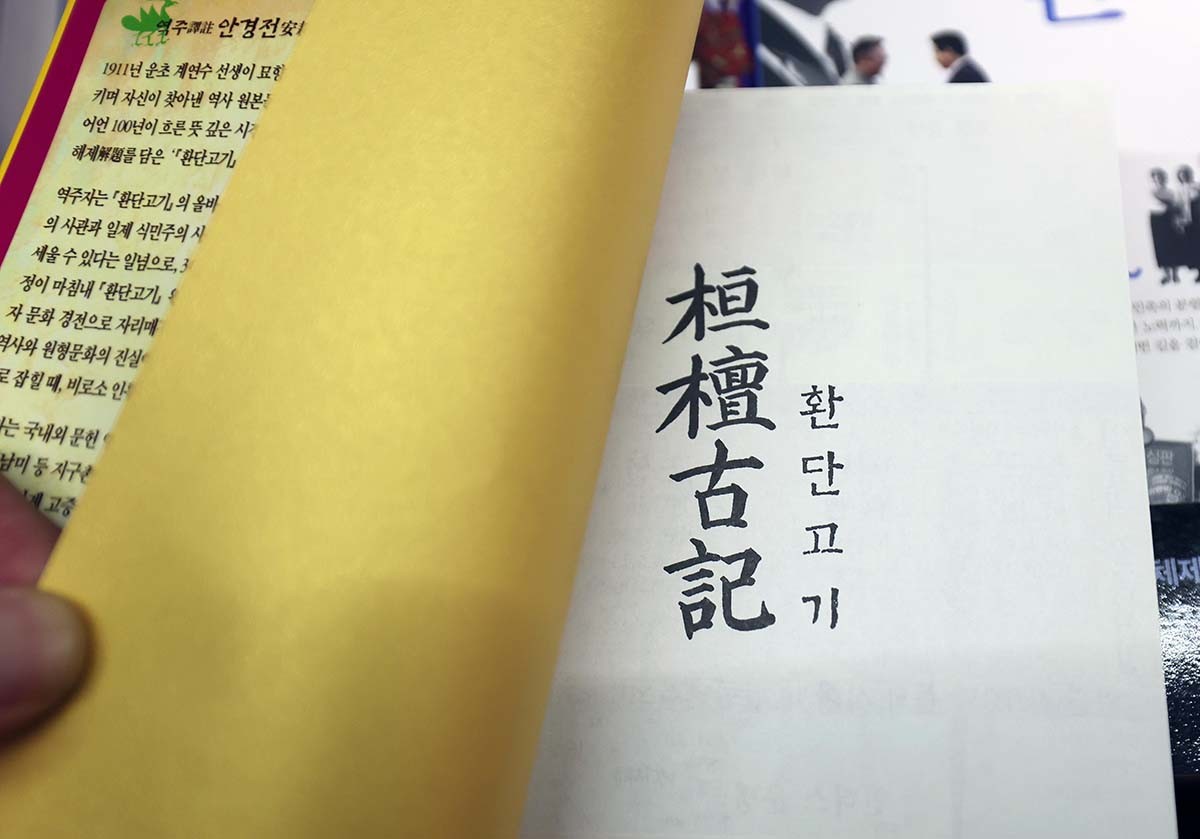 역주譯註 안경전安
1911년 운초 계연수 선생이 묘향
키며 자신이 찾아낸 역사 원본
어언 100년이 흐른 뜻 깊은 시
해제解題를 담은 『환단고기』
역주자는 『환단고기』의 올바
의 사관과 일제 식민주의 사
세울 수 있다는 일념으로, 3
정이 마침내 『환단고기』
자 문화 경전으로 자리매
역사와 원형문화의 진실
로 잡힐 때, 비로소 안
는 국내외 문헌
남미 등 지구촌
고증
桓檀古記
환단고기
심판
체제